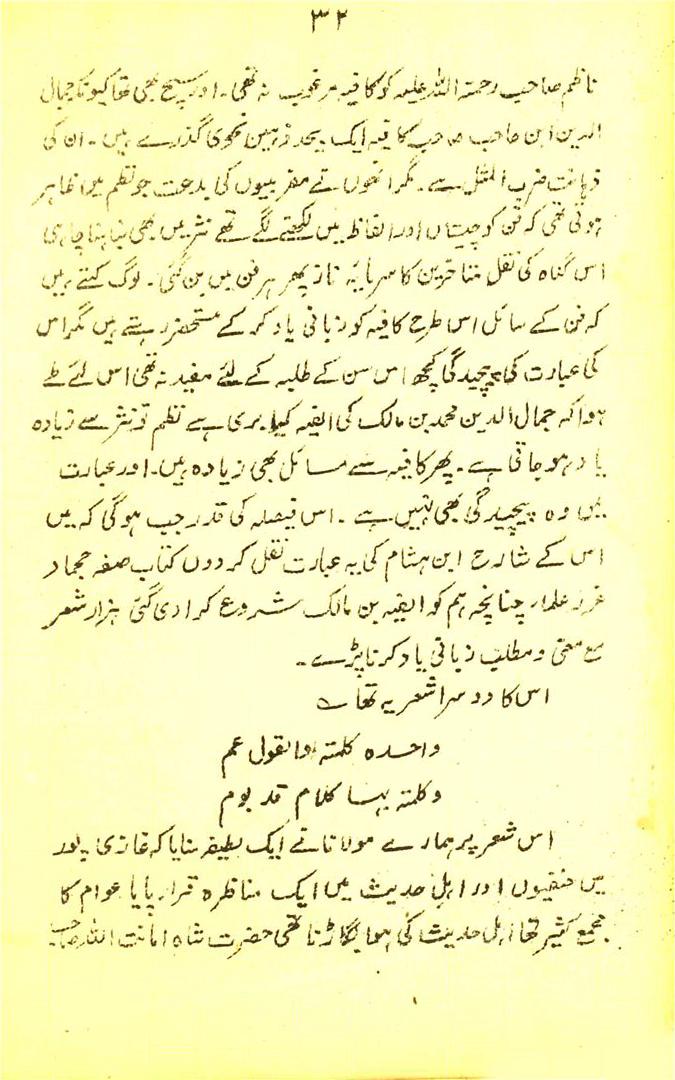 ۳۲
ناظم صاحب رحمتہ اللہ علیہ کو کافیہ مرغوب نہ تھی۔ اور سچ بھی تھا کیونکہ جمال
الدین ابن حاجب صاحب کافیہ ایک بیحد ذہین نحوی گذرے ہیں۔ ان کی
ذہانت ضرب المثل ہے۔ مگر انھوں نے مغربیوں کی بدعت جو نظم میں ظاہر
ہوئی تھی کہ فن کو چیستاں اور الفاظ میں لکھنے لگے تھے نثر میں بھی نباہنا چاہی
اس گناہ کی نقل متاخرین کا سرمایہ ناز پھر ہر فن میں بن گئی۔ لوگ کہتے ہیں
کہ فن کے مسائل اس طرح کافیہ کو زبانی یاد کر کے مستحضر رہتے ہیں مگر اس
کی عبارت کی پیچیدگی کچھ اس سن کے طلبہ کے لئے مفید نہ تھی اس لئے طے
ہوا کہ جمال الدین محمد بن مالک کی الفیہ کیا بری ہے نظم تو نثر سے زیادہ
یاد ہو جاتی ہے۔ پھر کافیہ سے مسائل بھی زیادہ ہیں۔ اور عبارت
میں وہ پیچیدگی بھی نہیں ہے۔ اس فیصلہ کی قدر جب ہوگی کہ میں
اس کے شارح ابن ہشام کی یہ عبارت نقل کردوں کتاب صغر حجما و
غزر علما۔ چنانچہ ہم کو الفیہ بن مالک شروع کرا دی گئی ہزار شعر
مع معنی و مطلب زبانی یاد کرنا پڑے۔
اس کا دوسرا شعر یہ تھا ؎
واحدہ کلمتہ والقول عم
وکلمتہ بہا کلام قد یوم
اس شعر پر ہمارے مولانا نے ایک لطیفہ بنایا کہ غازی پور
میں حنفیوں اور اہل حدیث میں ایک مناظرہ قرار پایا عوام کا
مجمع کثیر تھا اہل حدیث کی ہوا بگاڑنا تھی حضرت شاہ امانت اللہ صاحب